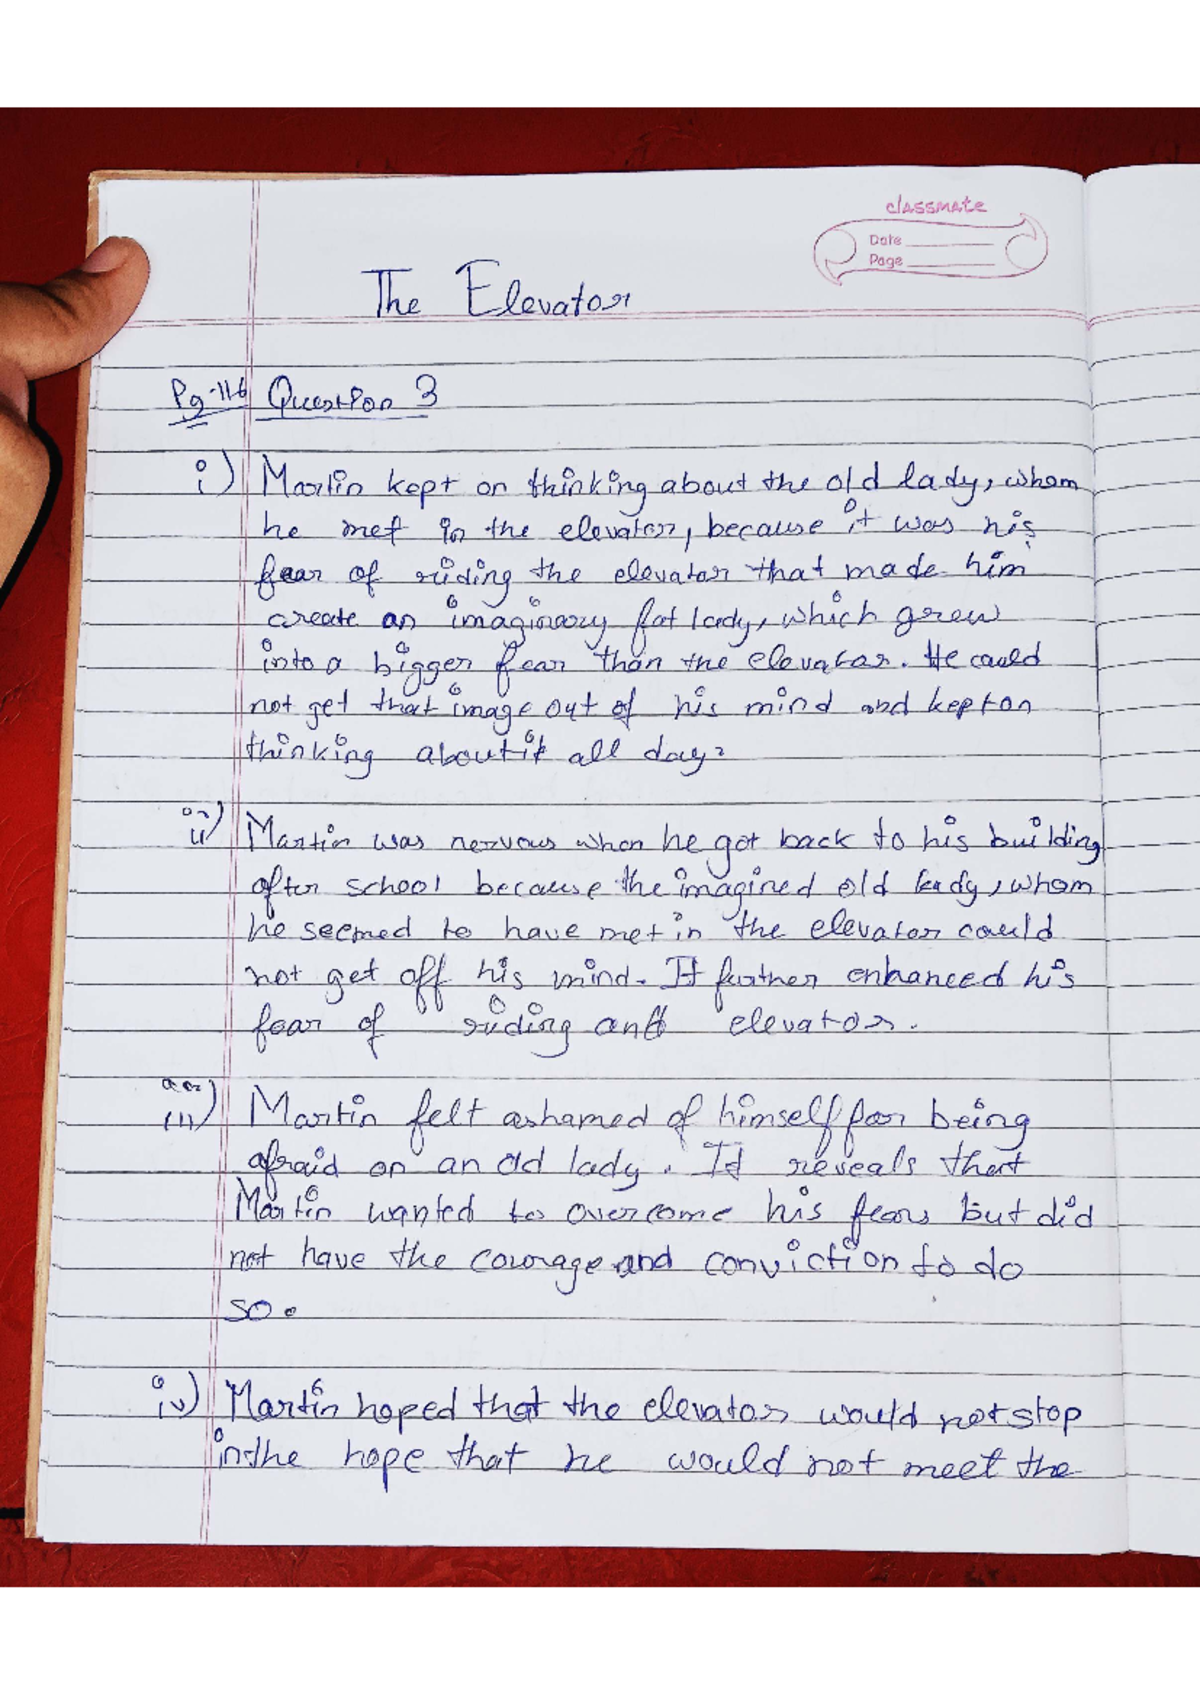 classmate
Date
Page
The Elevator
Pg-116 Question 3
i) Martin kept on thinking about the old lady, whom
he met in the elevator, because it was his
fear of riding the elevator that made him
create an imaginary fat lady, which grew
into a bigger fear than the elevator. He could
not get that image out of his mind and kept on
thinking about it all day.
ii) Martin was nervous when he got back to his building
after school because the imagined old lady, whom
he seemed to have met in the elevator could
not get off his mind. It further enhanced his
fear of riding an elevator.
iii) Martin felt ashamed of himself for being
afraid on an old lady. It reveals that
Martin wanted to overcome his fears but did
not have the courage and conviction to do
so.
iv) Martin hoped that the elevator would not stop
in the hope that he would not meet the